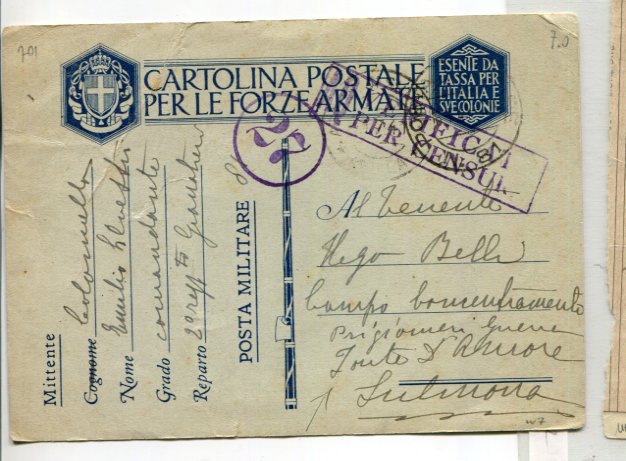 701
7.0
CARTOLINA POSTALE
PER LE FORZE ARMATE
ESENTE DA
TASSA PER
L'ITALIA E
SVE COLONIE
VERIFICATA
PER CENSURA
Mittente
Cognome Colonnello
Nome Emilio
Grado comandante
Reparto 2° regg to Granatieri
POSTA MILITARE 84
Al tenente
Hugo Belli
Campo Concentramento
Prigionieri Guerra
Fonte D'Amore
Sulmona